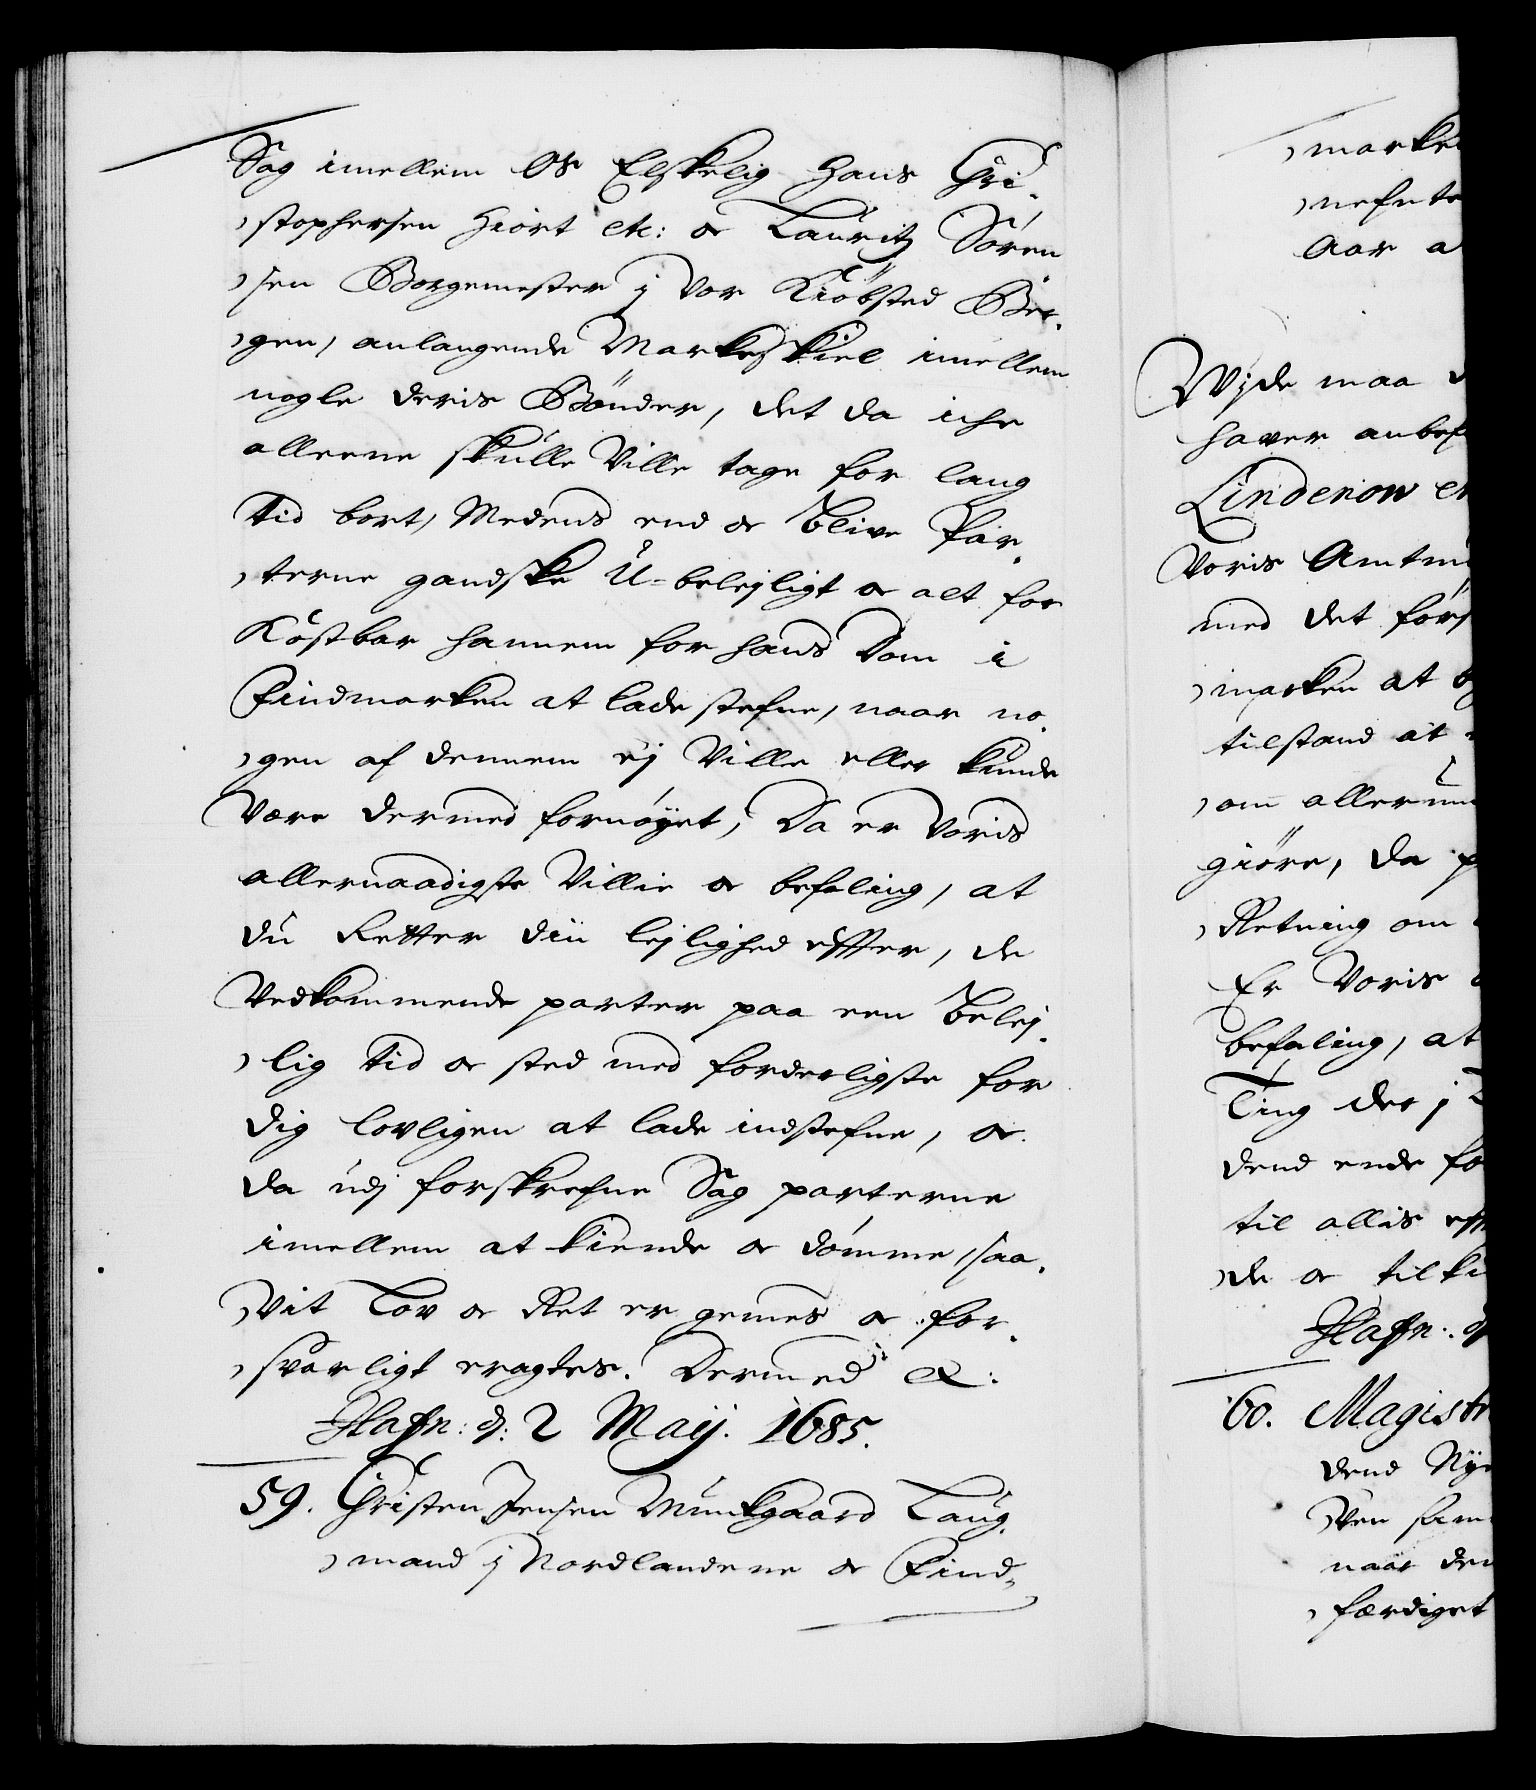 Sag imellem Os Elskelig Hans Chri-
stophersen Hiort etc: oc Lauritz Sören
sen Borgemester j vor Kiöbsted Ber-
gen, anlangende Markeskiel imellem
nogle deris Bönder, det da iche
alleene skulle Ville tage for lang
tid bort, Medens end oc blive Par-
terne gandske U-belejligt oc alt for
Kostbar hannem for hans Dom i
Findmarken at lade stefne, naar no-
gen af dennem ej Ville eller kunde
Være dermed fornöyet, Da er Voris
allernaadigste Villie oc befaling, at
du Retter din lejlighed effter, de
Vedkommende parter paa een belej-
lig tid oc sted med forderligste for
dig lovligen at lade indstefne, oc
da udj forskrefne Sag parterne
imellem at kiende oc dömme, saa-
vit Lov oc Ret er gemes oc for-
svarligt eragtes. Dermed &:
Hafn: d: 2 Maij. 1685.
59. Christen Jensen Munkgaard Laug-
mand j Nordlandene oc Find-
marken
nefnte
Aar a
Wijde maa
haver anbef
Lindenow et
Voris Amtm
med det förs
marken at
tilstand at
om allerun
giöre, da p
Retning om
Er Voris
befaling, at
Ting der j
dend ende fo
til allis eff
de oc tilki
Hafn: d
60. Magistr
dend Nye
Ven sam
naar den
færdiget